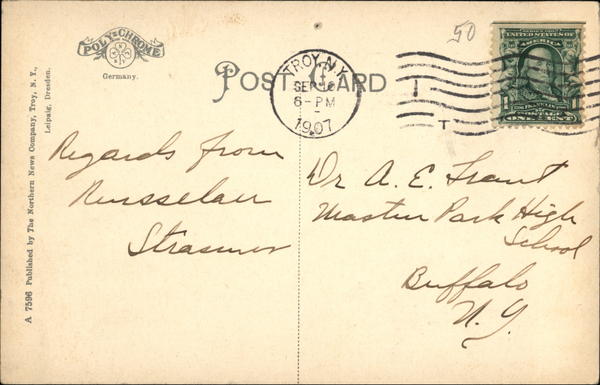 50
POLY-CHROME
Germany.
POST CARD
TROY, N.Y.
SEP 12
6-PM
1907
UNITED STATES OF AMERICA
FRANKLIN
POSTAGE
ONE CENT
A 7596 Published by The Northern News Company, Troy, N. Y.,
Leipzig, Dresden.
Regards from
Strasmer
Dr A. E. Frant
Masten Park High
School
Buffalo
N. Y.